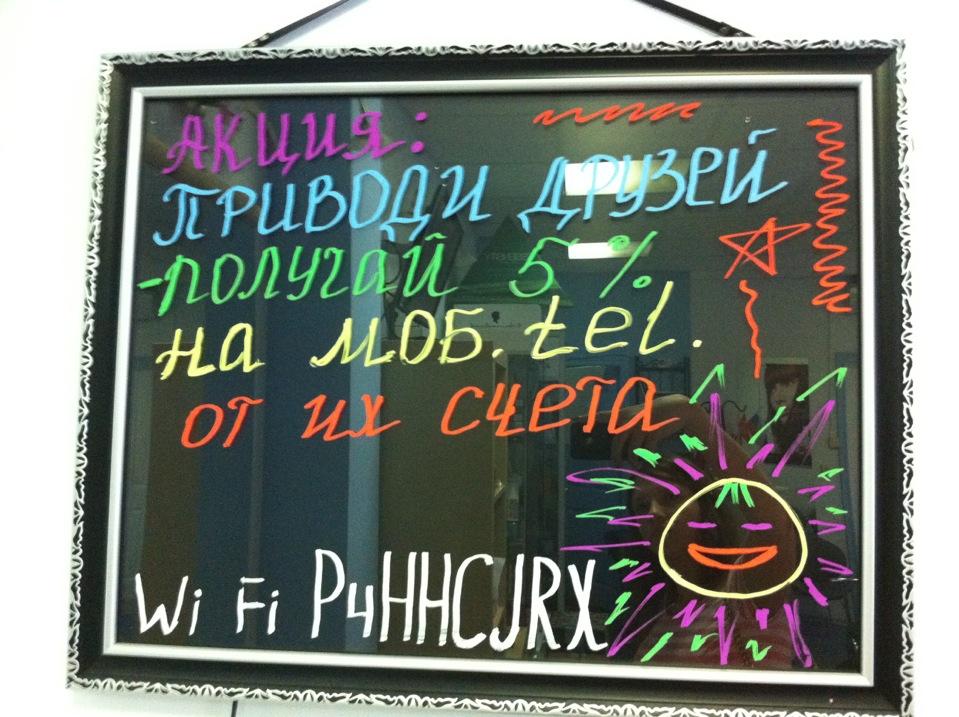 АКЦИЯ:
ПРИВОДИ ДРУЗЕЙ
-ПОЛУЧАЙ 5 %
НА МОБ. tel.
ОТ ИХ СЧЕТА
Wi Fi P4HHCJRX